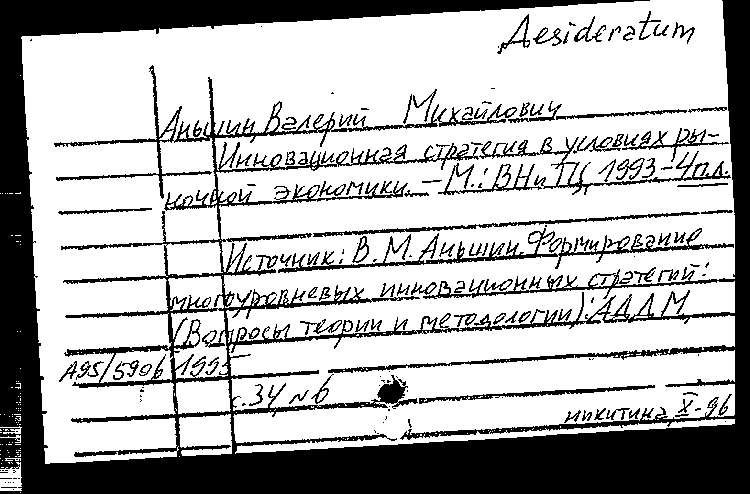 Desideratum
Аньшин, Валерий Михайлович
Инновационная стратегия в условиях ры-
ночной экономики. – М.: ВНиТЦ, 1993. – 4 п.л.
Источник: В.М. Аньшин. Формирование
многоуровневых инновационных стратегий:
(Вопросы теории и методологии): АДД М,
А95/5906 1995
с.34, №6
никитина, X-96